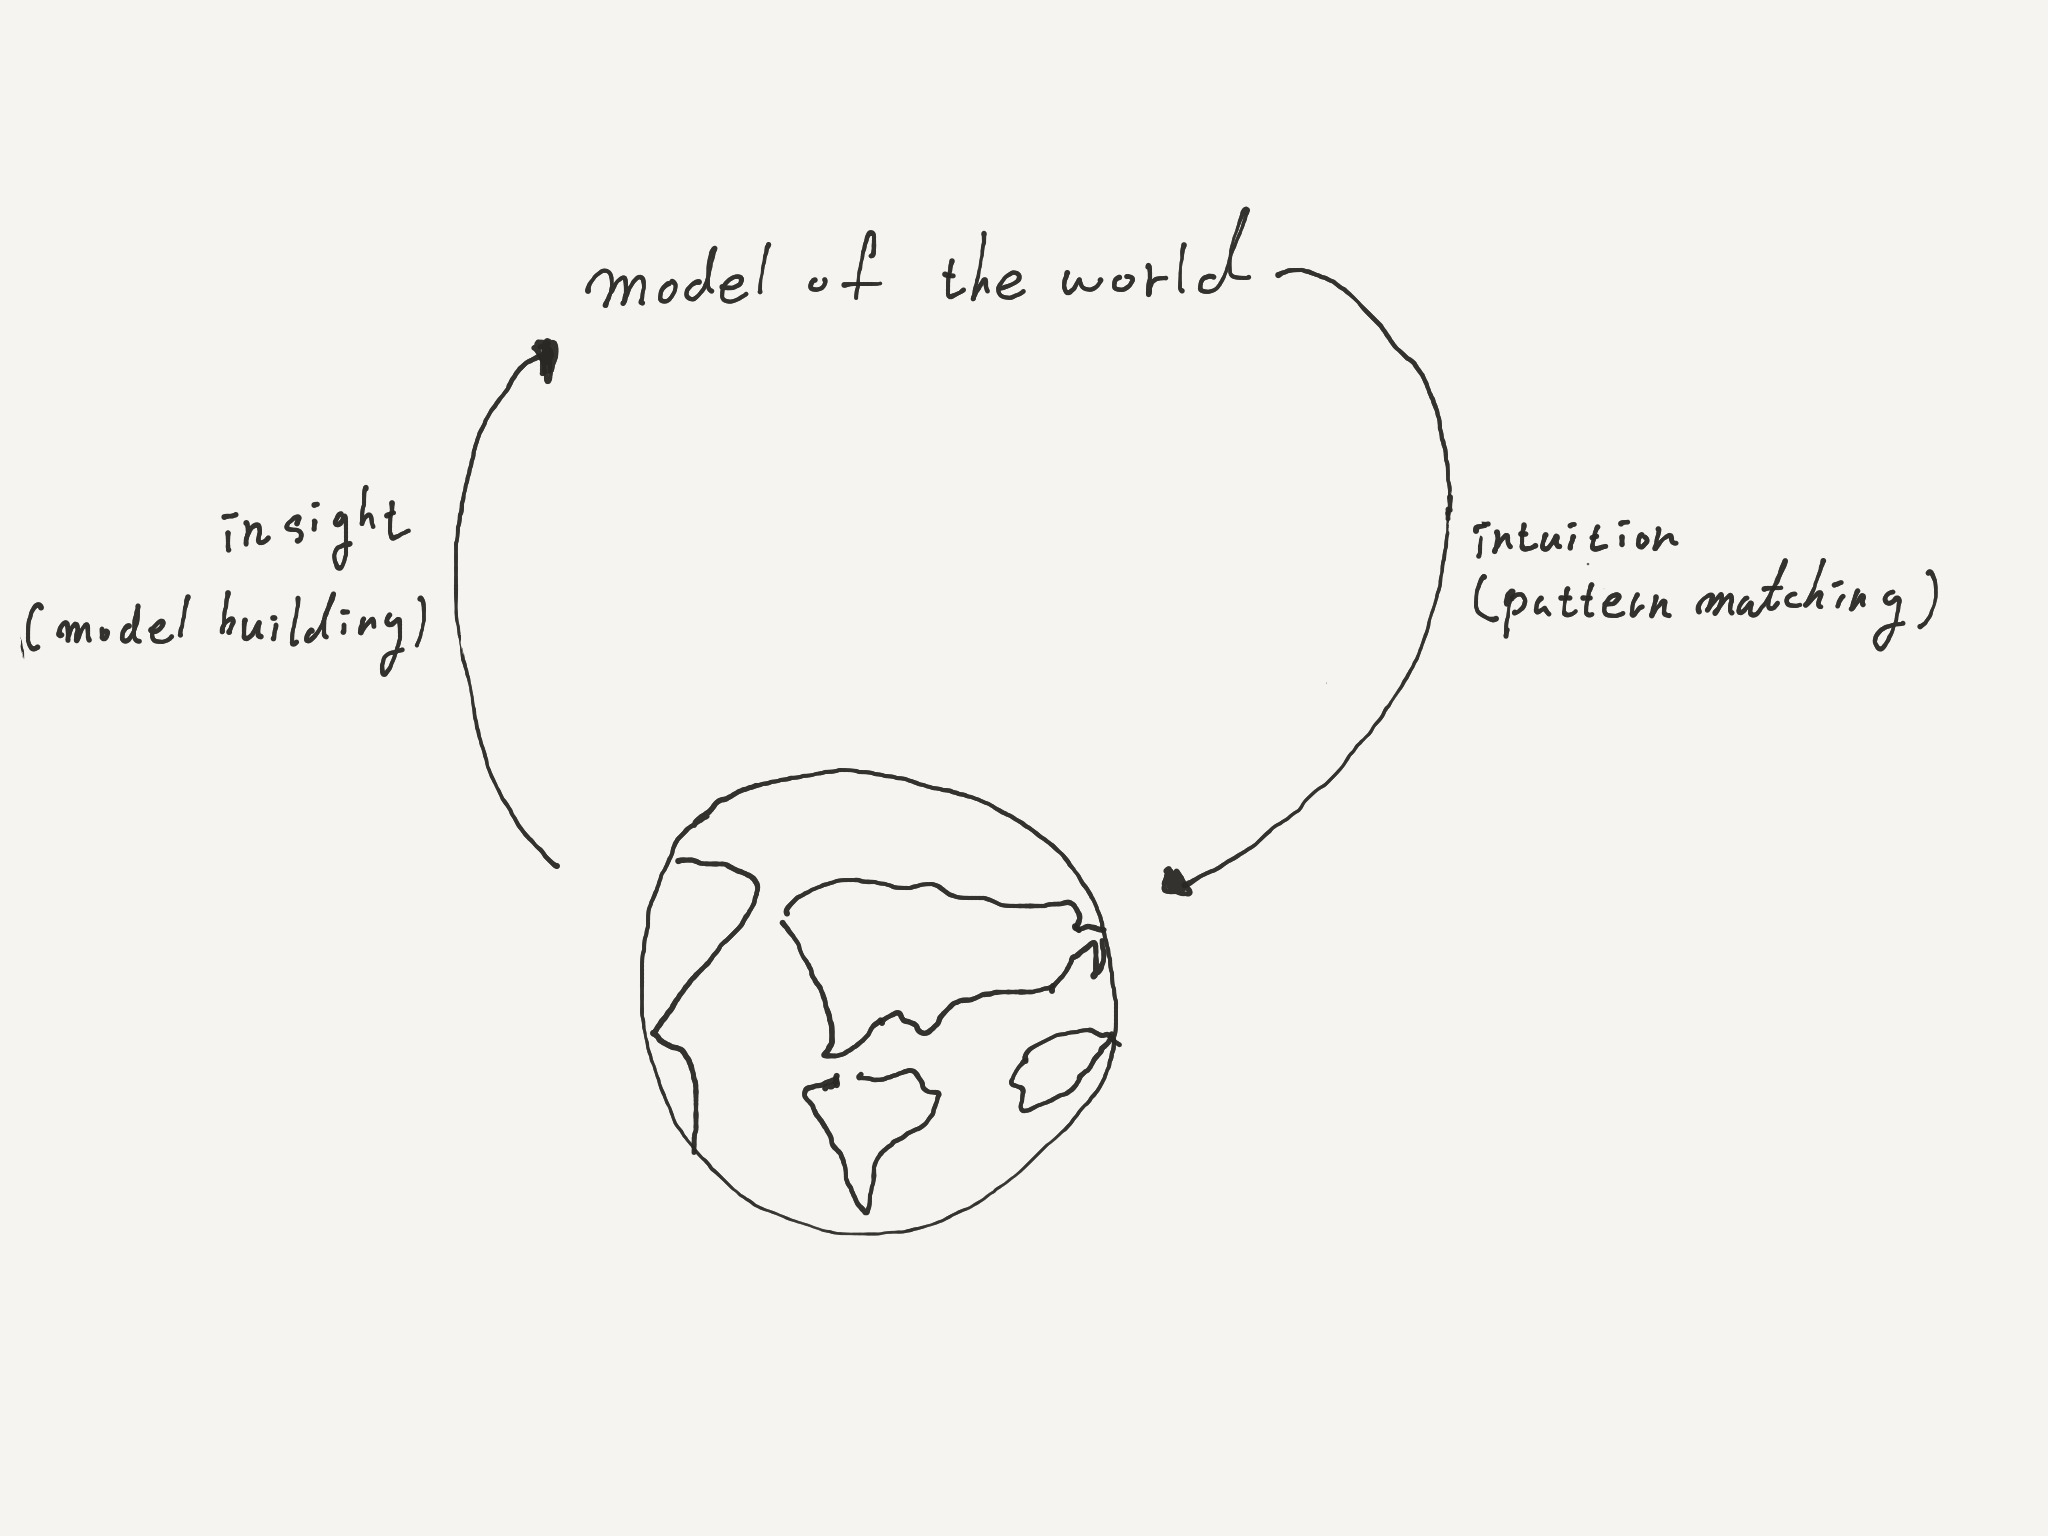 model of the world
insight
(model building)
intuition
(pattern matching)